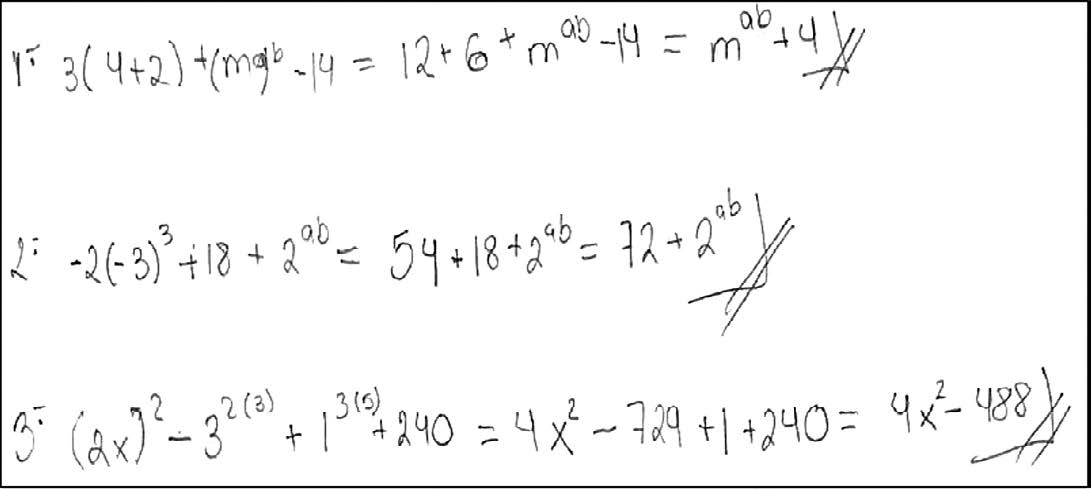 1.- 3(4+2)+(mᵃ)ᵇ -14 = 12+6+mᵃᵇ-14 = mᵃᵇ+4
2.- -2(-3)³+18+2ᵃᵇ = 54+18+2ᵃᵇ = 72+2ᵃᵇ
3.- (2x)²-3²⁽³⁾+1³⁽⁵⁾+240 = 4x²-729+1+240 = 4x²-488